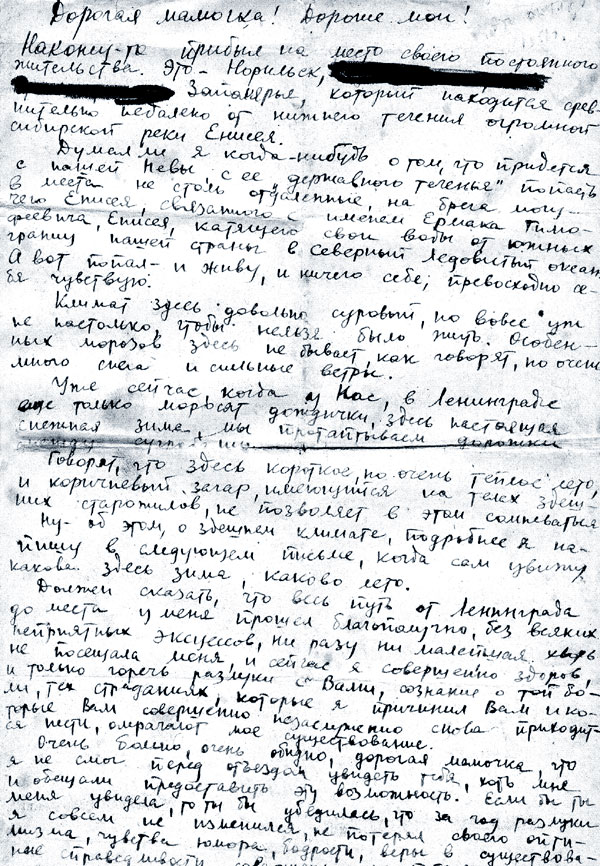 Дорогая мамочка! Дорогие мои!
Наконец-то прибыл на место своего постоянного
жительства. Это - Норильск,
Заполярья, который находится срав-
нительно недалеко от нижнего течения огромной
сибирской реки Енисея.
Думал ли я когда-нибудь о том, что придется
с нашей Невы, с ее „державного теченья" попасть
в места не столь отдаленные, на брега могу-
чего Енисея, связанного с именем Ермака Тимо-
феевича, Енисея, катящего свои воды от южных
границ нашей страны в Северный Ледовитый океан.
А вот попал - и живу, и ничего себе, превосходно се-
бя чувствую.
Климат здесь довольно суровый, но вовсе уж
не настолько, чтобы нельзя было жить. Особен-
ных морозов здесь не бывает, как говорят, но очень
много снега и сильные ветры.
Уже сейчас, когда у Вас, в Ленинграде
еще только моросят дождички, здесь настоящая
снежная зима, мы протаптываем дорожки
Говорят, что здесь короткое, но очень теплое лето,
и коричневый загар, имеющийся на телах здеш-
них старожилов, не позволяет в этом сомневаться
Ну - об этом, о здешнем климате, подробнее я на-
пишу в следующем письме, когда сам увижу,
какова здесь зима, каково лето.
Должен сказать, что весь путь от Ленинграда
до места у меня прошел благополучно, без всяких
неприятных эксцессов, ни разу ни малейшая хворь
не посещала меня, и сейчас я совершенно здоров,
и только горечь разлуки с Вами, сознание о той бо-
ли, тех страданиях, которые я причинил Вам и ко-
торые Вам совершенно незаслуженно снова приходит-
ся нести, омрачают мое существование.
Очень больно, очень обидно, дорогая мамочка, что
я не смог перед отъездом увидеть тебя, хоть мне
и обещали предоставить эту возможность. Если бы ты
меня увидела, то ты бы убедилась, что за год разлуки
я совсем не изменился, не потерял своего опти-
мизма, чувства юмора, бодрости, веры в существова-
ние справедливости